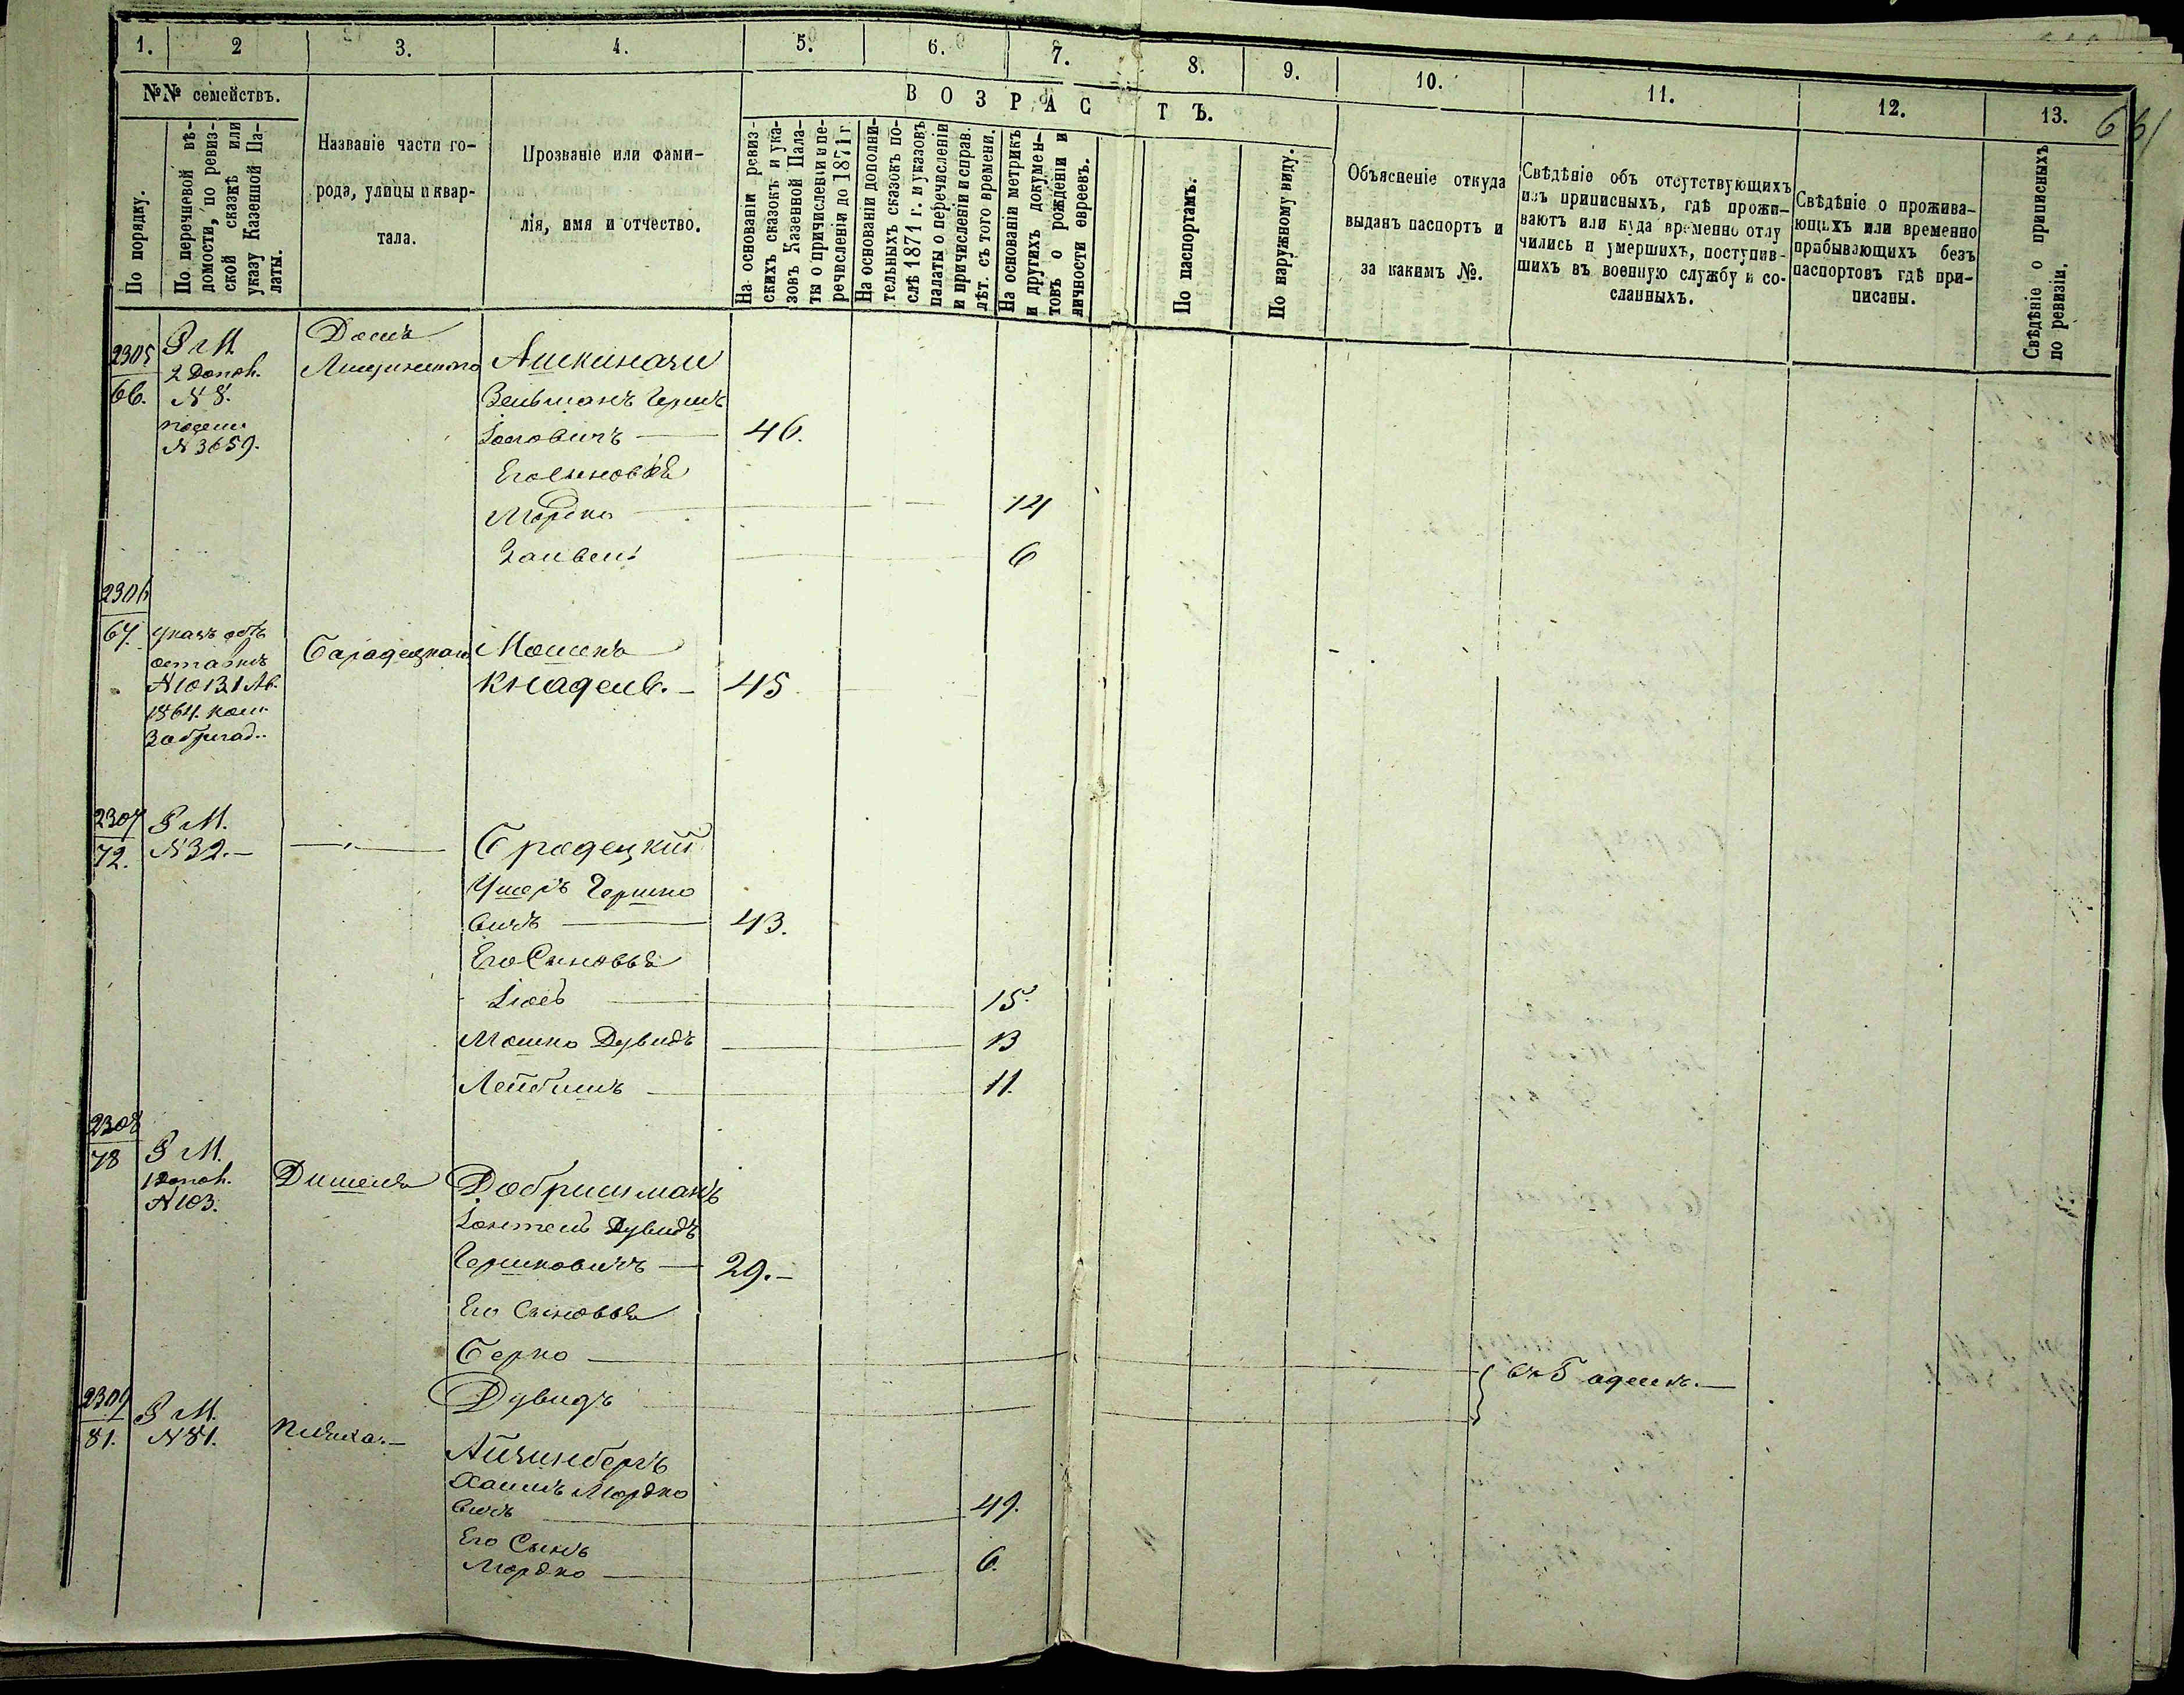 1. 2 3. 4. 5. 6. 7. 8. 9. 10. 11. 12. 13.
661
№№ семействъ.
По порядку.
По перечневой вѣ-
домости, по ревиз-
ской сказкѣ или
указу Казенной Па-
латы.
Названіе части го-
рода, улицы и квар-
тала.
Прозваніе или фами-
лія, имя и отчество.
ВОЗРАСТЪ.
На основаніи ревиз-
скихъ сказокъ и ука-
зовъ Казенной Пала-
ты о причисленіи и пе-
речисленіи до 1871 г.
На основаніи дополни-
тельныхъ сказокъ по-
слѣ 1871 г. и указовъ
палаты о перечисленіи
и причисленіи и справ.
лѣт. съ того времени.
На основаніи метрикъ
и другихъ докумен-
товъ о рожденіи и
личности евреевъ.
По паспортамъ.
По наружному виду.
Объясненіе откуда
выданъ паспортъ и
за какимъ №.
Свѣдѣніе объ отсутствующихъ
изъ приписныхъ, гдѣ прожи-
ваютъ или куда временно отлу
чились и умершихъ, поступив-
шихъ въ военную службу и со-
сланныхъ.
Свѣдѣніе о прожива-
ющихъ или временно
прабывающихъ безъ
паспортовъ гдѣ при-
писаны.
Свѣдѣніе о приписныхъ
по ревизіи.
2305
66.
Р М
2 Допол.
№ 8.
№ 3659.
Домъ
Ашкинази
Зельманъ Герш
Іосовичъ 46.
Его сыновья
Мордко 14
Зайвел 6
2306
67. указъ
№ 10131
1864.
Барадецкаго
Мошко
Кнадель. 45
2307
72.
Р М.
№ 32.
Брадецкій
Ушеръ Гершко
вичъ 43.
Его Сыновья
Іосъ 15.
Мошко Дувидъ 13
Лейбишъ 11.
2308
78
Р М.
1 Допол.
№ 103.
Дишеля
Добришманъ
Дувидъ
Гершковичъ 29.
Его Сыновья
Берко
Дувидъ
въ Б адеск.
2309
81.
Р М.
№ 81.
Айзинбергъ
Хаимъ Мордко
вичъ 49.
Его Сынъ
Мордко 6.